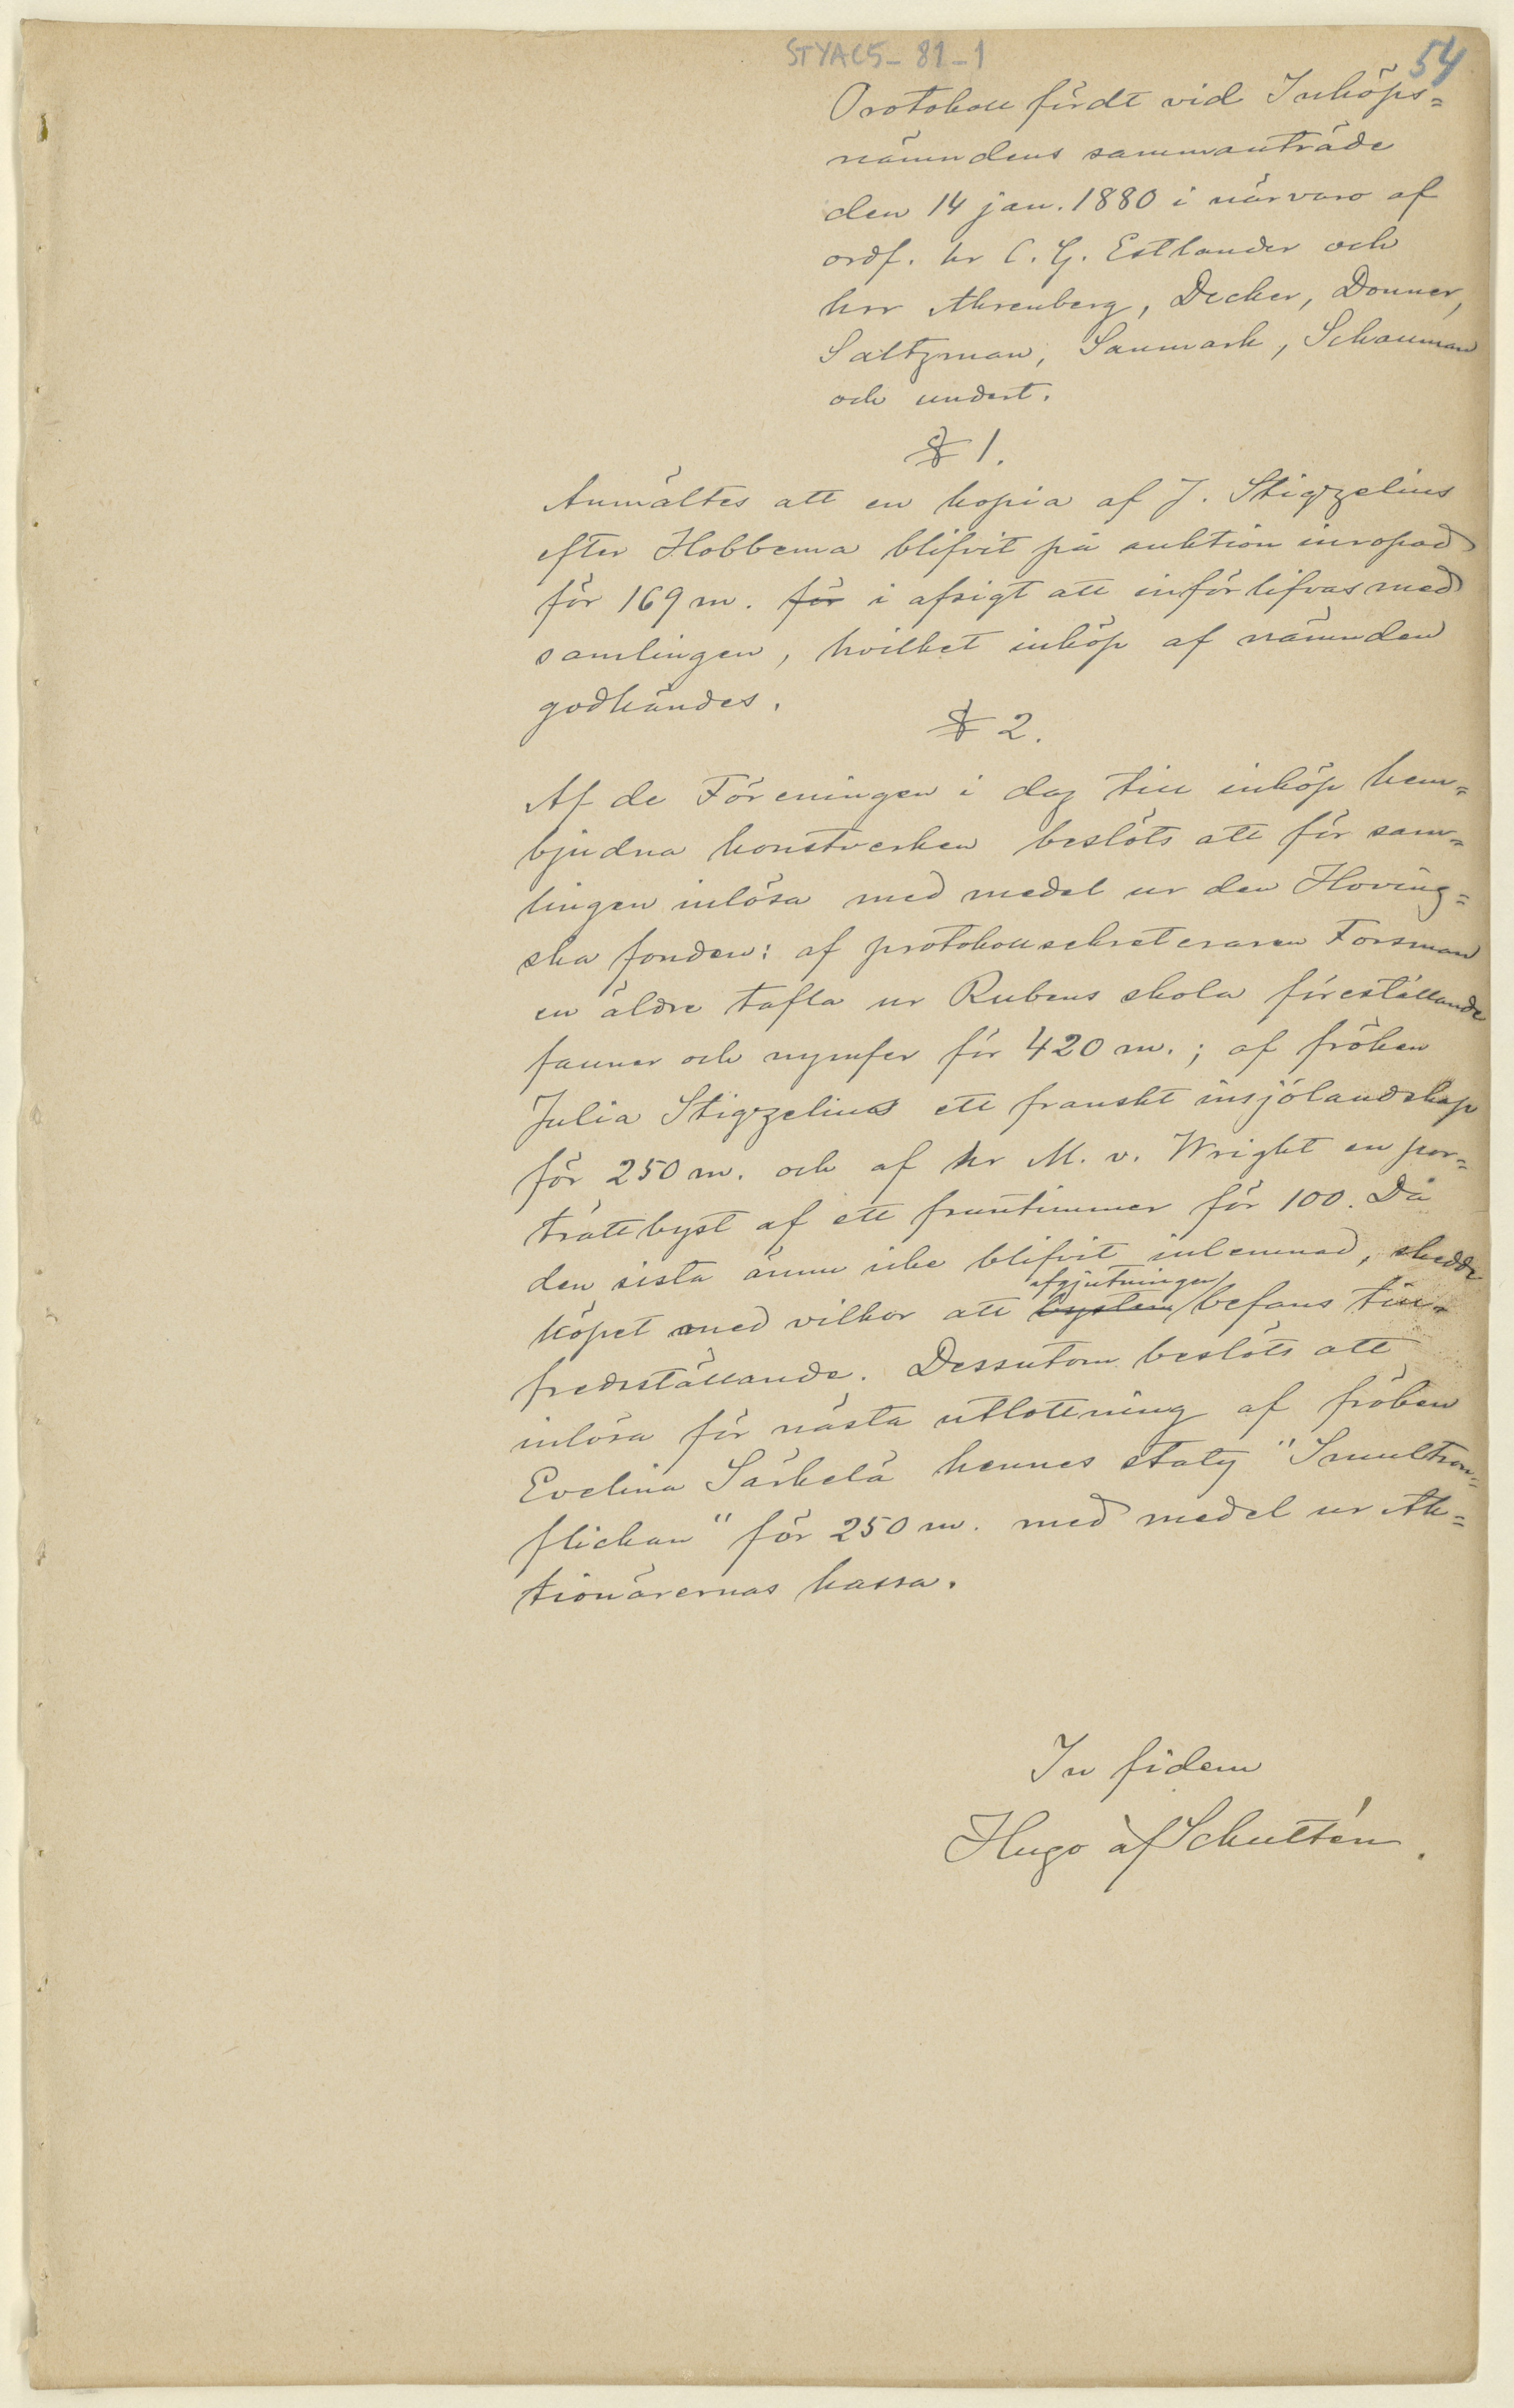 STYAC5-81-1
54
Protokoll fördt vid Inköps=
nämndens sammanträde
den 14 jan. 1880 i närvaro af
ordf. hr C. G. Estlander och
hrr Ahrenberg, Decker, Donner,
Saltzman, Sanmark, Schauman
och undert.
§ 1.
Anmältes att en kopia af J. Stigzelius
efter Hobbema blifvit på auktion inropad
för 169 m. för i afsigt att införlifvas med
samlingen, hvilket inköp af nämnden
godkändes.
§ 2.
Af de Föreningen i dag till inköp hem=
bjudna konstverken beslöts att för sam=
lingen inlösa med medel ur den Hoving=
ska fonden: af protokollsekreteraren Forsman
en äldre tafla ur Rubens skola föreställande
fauner och nymfer för 420 m.; af fröken
Julia Stigzelius ett franskt insjölandskap
för 250 m. och af hr M. v. Wright en por=
trättbyst af ett fruntimmer för 100. Då
den sista ännu icke blifvit inlemnad, skedde
afgjutningen
köpet med vilkor att bysten befans till=
fredsställande. Dessutom beslöts att
inlösa för nästa utlottning af fröken
Evelina Särkelä hennes staty "Smultron=
flickan" för 250 m. med medel ur Ak=
tionärernas kassa.
In fidem
Hugo af Schultén.